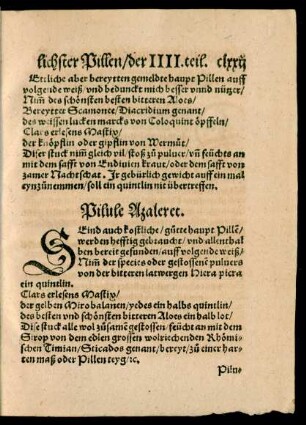 lichster Pillen/der IIII.teil. clxxij
Etliche aber bereytten gemeldte haupt Pillen auff
volgende weiß/vnd bedunckt mich besser vnnd nützer/
Nim̃ des schönsten besten bitteren Aloes/
Bereyteter Scamonee/Diacridium genant/
des weissen lucken marcks von Coloquint öpffeln/
Clars erlesens Mastix/
der knöpflin oder gipflin von Wermůt/
Diser stuck nim̃ gleich vil/stoß zů puluer/vn̄ feüchts an
mit dem safft von Endiuien kraut/oder dem safft von
zamer Nachtschat. Ir gebürlich gewicht auff ein mal
eynzůnemmen/soll ein quintlin nit übertreffen.
Pilule Azaleret.
SEind auch kostliche/gůte haupt Pillē/
werden hefftig gebraucht/vnd allenthal
ben bereit gefunden/auff volgende weiß/
Nim̃ der species oder gestossene puluers
von der bitteren latwergen Hiera picra
ein quintlin.
Clars erlesens Mastix/
der gelben Mirobalanen/yedes ein halb quintlin/
des besten vnd schönsten bitteren Aloes ein halb lot/
Dise stuck alle wol zůsamē gestossen/feücht an mit dem
Sirop von dem edlen grossen wolriechenden Rhömi-
schen Timian/Sticados genant/bereyt/zů einer har-
ten maß oder Pillen teyg/ꝛc.
Pilus